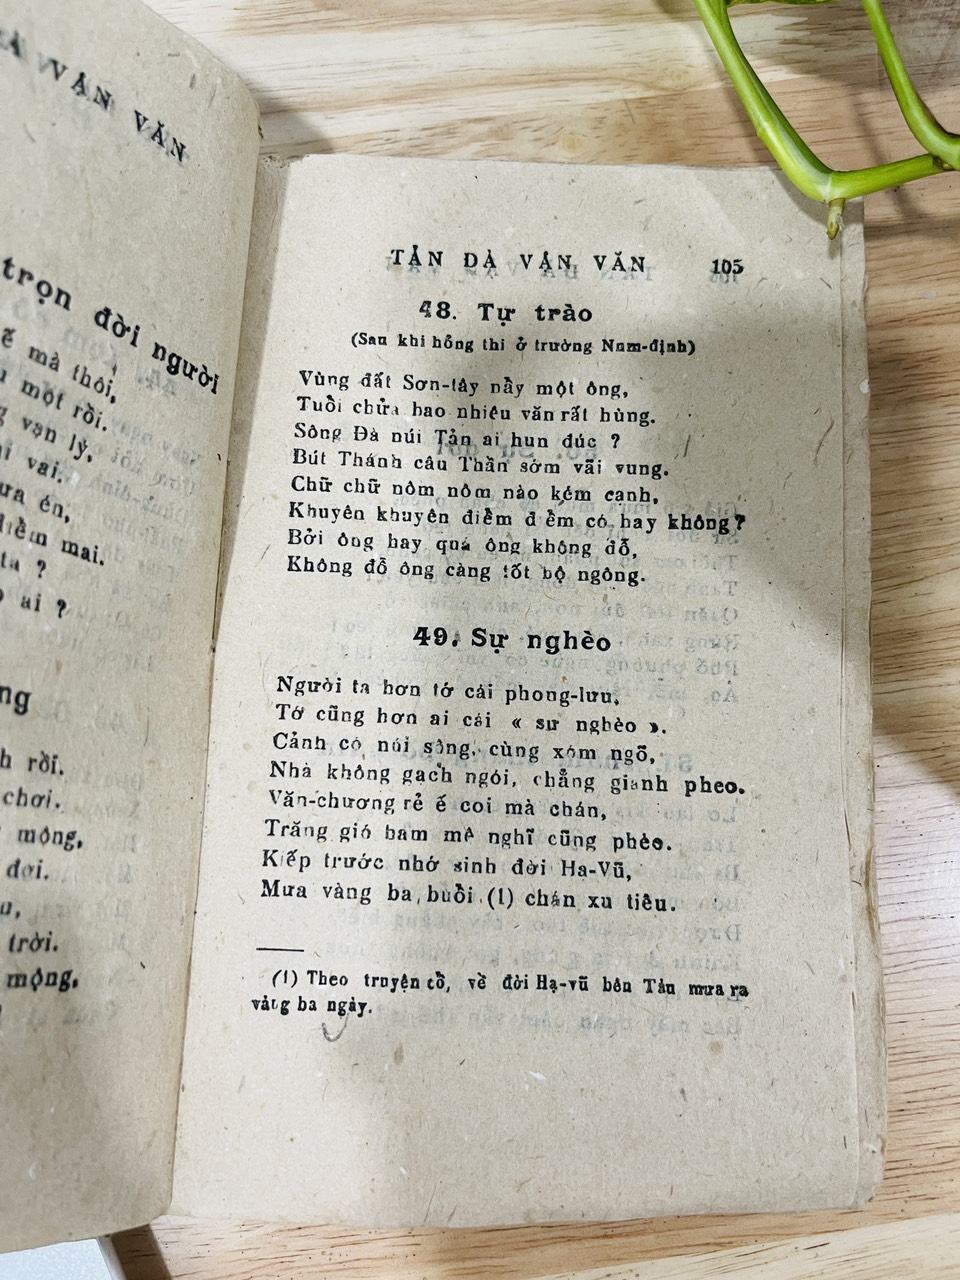 VẬN VĂN
trọn đời người
mà thôi,
một rồi.
vạn lý,
vai.
én,
điểm mai.
ta ?
ai ?
rồi.
chơi.
mộng,
đợi.
trời.
mộng,
TẢN ĐÀ VẬN VĂN 105
48. Tự trào
(Sau khi hỏng thi ở trường Nam-định)
Vùng đất Sơn-tây nầy một ông,
Tuổi chửa bao nhiêu văn rất hùng.
Sông Đà núi Tản ai hun đúc ?
Bút Thánh câu Thần sớm vãi vung.
Chữ chữ nôm nôm nào kém cạnh,
Khuyên khuyên điểm điểm có hay không ?
Bởi ông hay quá ông không đỗ,
Không đỗ ông càng tốt bộ ngông.
49. Sự nghèo
Người ta hơn tớ cái phong-lưu,
Tớ cũng hơn ai cái « sự nghèo ».
Cảnh có núi sông, cùng xóm ngõ,
Nhà không gạch ngói, chẳng gianh pheo.
Văn-chương rẻ ế coi mà chán,
Trăng gió ham mê nghĩ cũng phèo.
Kiếp trước nhớ sinh đời Hạ-Vũ,
Mưa vàng ba buổi (1) chán xu tiêu.
(1) Theo truyện cổ, về đời Hạ-vũ bên Tàu mưa ra
vàng ba ngày.